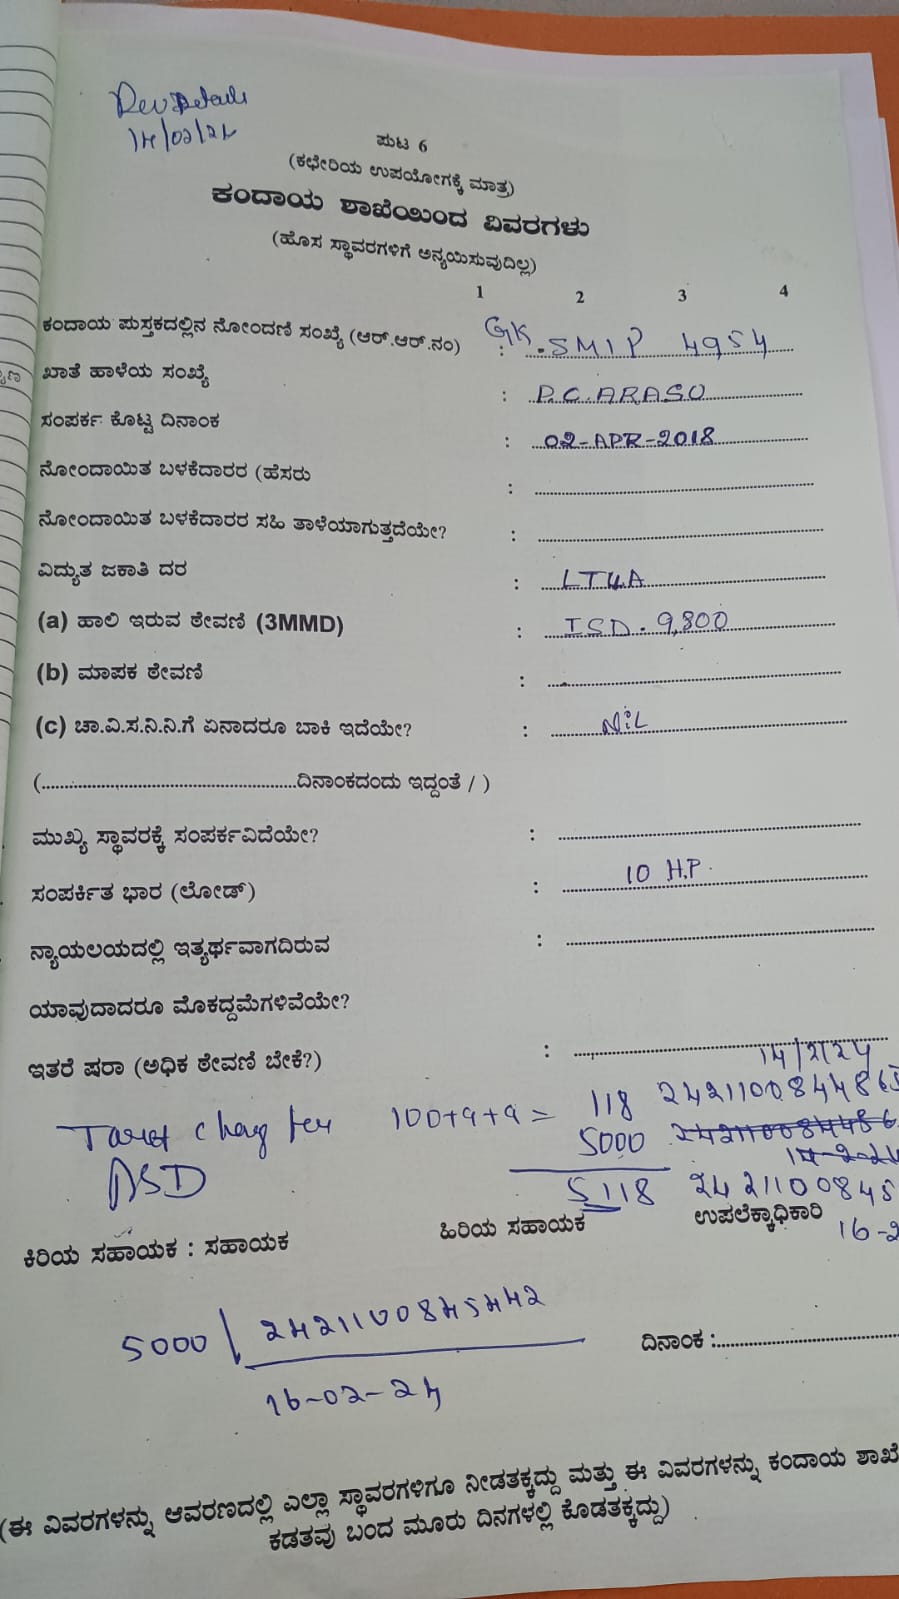 Rev Details
14/02/24
ಪುಟ 6
(ಕಛೇರಿಯ ಉಪಯೋಗಕ್ಕೆ ಮಾತ್ರ)
ಕಂದಾಯ ಶಾಖೆಯಿಂದ ವಿವರಗಳು
(ಹೊಸ ಸ್ಥಾವರಗಳಿಗೆ ಅನ್ವಯಿಸುವುದಿಲ್ಲ)
1 2 3 4
ಕಂದಾಯ ಪುಸ್ತಕದಲ್ಲಿನ ನೋಂದಣಿ ಸಂಖ್ಯೆ (ಆರ್.ಆರ್.ನಂ) : GK.SMIP 4954
ಖಾತೆ ಹಾಳೆಯ ಸಂಖ್ಯೆ : P.C.ARASU
ಸಂಪರ್ಕ ಕೊಟ್ಟ ದಿನಾಂಕ : 02-APR-2018
ನೋಂದಾಯಿತ ಬಳಕೆದಾರರ (ಹೆಸರು :
ನೋಂದಾಯಿತ ಬಳಕೆದಾರರ ಸಹಿ ತಾಳೆಯಾಗುತ್ತದೆಯೇ? :
ವಿದ್ಯುತ ಜಕಾತಿ ದರ : LT4A
(a) ಹಾಲಿ ಇರುವ ಠೇವಣಿ (3MMD) : ISD. 9,800
(b) ಮಾಪಕ ಠೇವಣಿ :
(c) ಚಾ.ವಿ.ಸ.ನಿ.ನಿ.ಗೆ ಏನಾದರೂ ಬಾಕಿ ಇದೆಯೇ? : NiL
(..............ದಿನಾಂಕದಂದು ಇದ್ದಂತೆ / )
ಮುಖ್ಯ ಸ್ಥಾವರಕ್ಕೆ ಸಂಪರ್ಕವಿದೆಯೇ? :
ಸಂಪರ್ಕಿತ ಭಾರ (ಲೋಡ್) : 10 H.P.
ನ್ಯಾಯಲಯದಲ್ಲಿ ಇತ್ಯರ್ಥವಾಗದಿರುವ :
ಯಾವುದಾದರೂ ಮೊಕದ್ದಮೆಗಳಿವೆಯೇ?
ಇತರೆ ಷರಾ (ಅಧಿಕ ಠೇವಣಿ ಬೇಕೆ?) :
14/2/24
100+9+9 = 118 242110084486
5000
ASD 5118 2421100845
ಕಿರಿಯ ಸಹಾಯಕ : ಸಹಾಯಕ ಹಿರಿಯ ಸಹಾಯಕ ಉಪಲೆಕ್ಕಾಧಿಕಾರಿ
16-2
5000 | 2421100845442
16-02-24
ದಿನಾಂಕ :
(ಈ ವಿವರಗಳನ್ನು ಆವರಣದಲ್ಲಿ ಎಲ್ಲಾ ಸ್ಥಾವರಗಳಿಗೂ ನೀಡತಕ್ಕದ್ದು ಮತ್ತು ಈ ವಿವರಗಳನ್ನು ಕಂದಾಯ ಶಾಖೆ
ಕಡತವು ಬಂದ ಮೂರು ದಿನಗಳಲ್ಲಿ ಕೊಡತಕ್ಕದ್ದು)